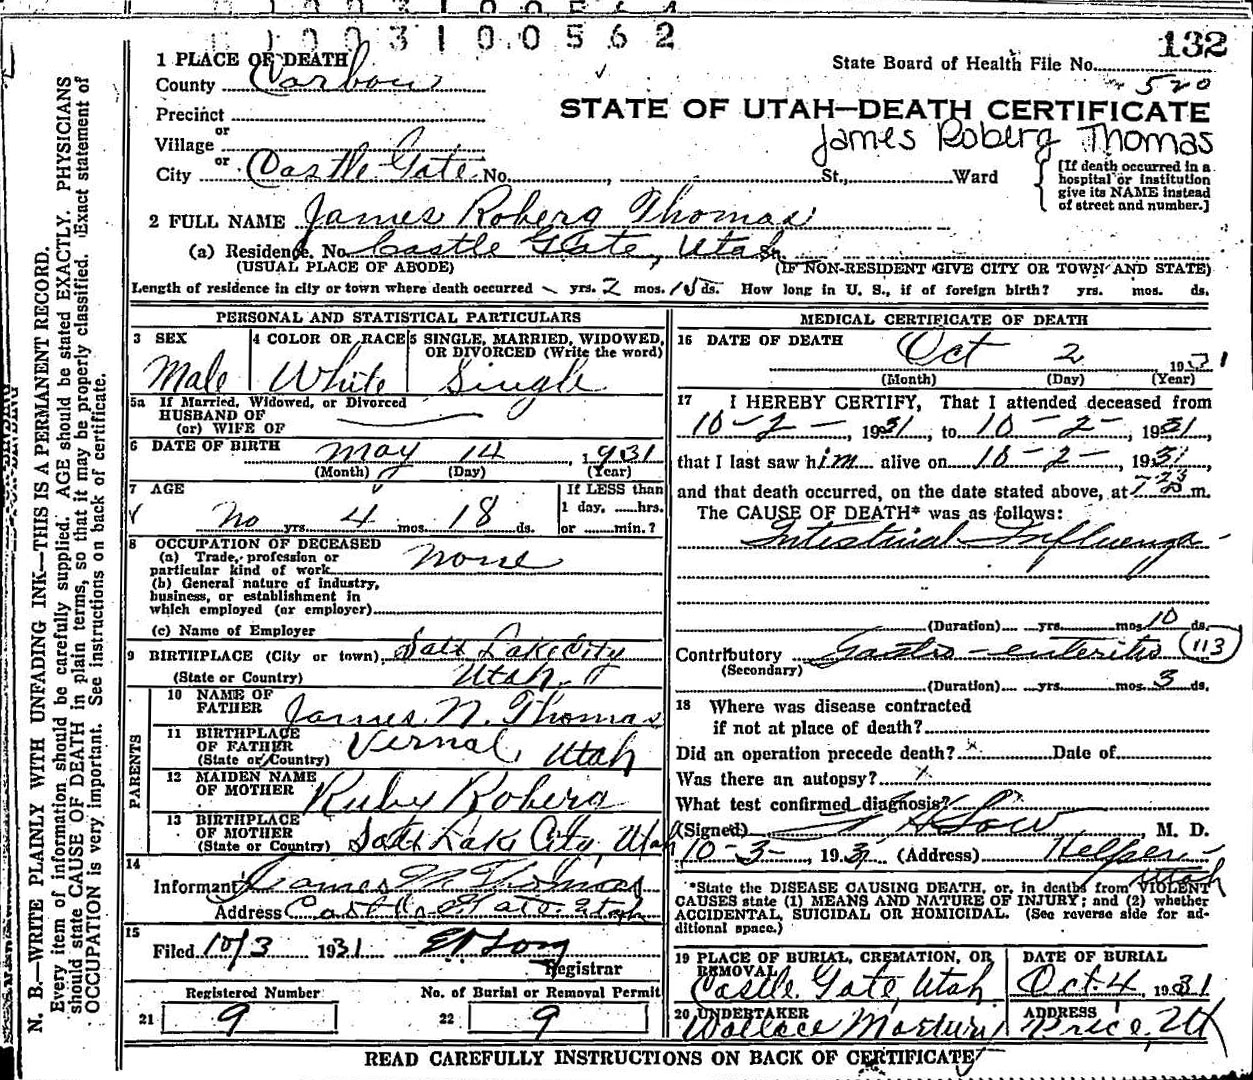 1003100562
132
1 PLACE OF DEATH
State Board of Health File No.
County Carbon
520
STATE OF UTAH—DEATH CERTIFICATE
Precinct
James Roberg Thomas
or
Village
or
City Castle Gate No. , St., Ward
[If death occurred in a hospital or institution give its NAME instead of street and number.]
2 FULL NAME James Roberg Thomas
(a) Residence. No. Castle Gate, Utah
(USUAL PLACE OF ABODE) (IF NON-RESIDENT GIVE CITY OR TOWN AND STATE)
Length of residence in city or town where death occurred yrs. 2 mos. 15 ds. How long in U. S., if of foreign birth? yrs. mos. ds.
PERSONAL AND STATISTICAL PARTICULARS
3 SEX
Male
4 COLOR OR RACE
White
5 SINGLE, MARRIED, WIDOWED, OR DIVORCED (Write the word)
Single
5a If Married, Widowed, or Divorced
HUSBAND OF
(or) WIFE OF
6 DATE OF BIRTH May 14 1931
(Month) (Day) (Year)
7 AGE
no yrs. 4 mos. 18 ds.
If LESS than
1 day, hrs.
or min.?
8 OCCUPATION OF DECEASED
(a) Trade, profession or
particular kind of work none
(b) General nature of industry,
business, or establishment in
which employed (or employer)
(c) Name of Employer
9 BIRTHPLACE (City or town) Salt Lake City
(State or Country) Utah
PARENTS
10 NAME OF FATHER James N. Thomas
11 BIRTHPLACE OF FATHER (State or Country) Vernal, Utah
12 MAIDEN NAME OF MOTHER Ruby Roberg
13 BIRTHPLACE OF MOTHER (State or Country) Salt Lake City, Utah
14
Informant James N Thomas
Address Castle Gate Utah
15
Filed 10/3 1931
Registrar
Registered Number
21 9
No. of Burial or Removal Permit
22 9
MEDICAL CERTIFICATE OF DEATH
16 DATE OF DEATH Oct 2 1931
(Month) (Day) (Year)
17 I HEREBY CERTIFY, That I attended deceased from
10-2-, 1931, to 10-2-, 1931,
that I last saw him alive on 10-2-, 1931,
and that death occurred, on the date stated above, at m.
The CAUSE OF DEATH* was as follows:
Intestinal Influenza-
(Duration) yrs. mos. 10 ds.
Contributory Gastro-enteritis 113
(Secondary)
(Duration) yrs. mos. 3 ds.
18 Where was disease contracted
if not at place of death?
Did an operation precede death? x Date of
Was there an autopsy? x
What test confirmed diagnosis?
(Signed) , M. D.
10-3-, 1931 (Address) Helper-
Utah
*State the DISEASE CAUSING DEATH, or, in deaths from VIOLENT
CAUSES state (1) MEANS AND NATURE OF INJURY; and (2) whether
ACCIDENTAL, SUICIDAL OR HOMICIDAL. (See reverse side for ad-
ditional space.)
19 PLACE OF BURIAL, CREMATION, OR REMOVAL
Castle Gate, Utah
DATE OF BURIAL
Oct-4, 1931
20 UNDERTAKER
Wallace Mortuary
ADDRESS
Price, Ut
READ CAREFULLY INSTRUCTIONS ON BACK OF CERTIFICATE
N. B.—WRITE PLAINLY WITH UNFADING INK—THIS IS A PERMANENT RECORD.
Every item of information should be carefully supplied. AGE should be stated EXACTLY. PHYSICIANS
should state CAUSE OF DEATH in plain terms, so that it may be properly classified. Exact statement of
OCCUPATION is very important. See instructions on back of certificate.